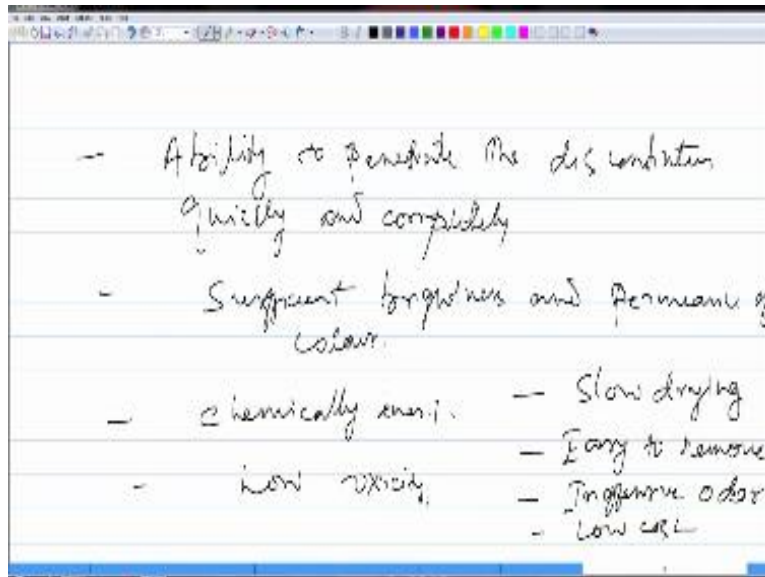 - Ability to Penetrate the discontinuities
quickly and completely
- Sufficient brightness and Permeance of
colour.
- Chemically inert.
- Low toxicity
- Slow drying
- Easy to remove
- Inoffensive odor
- Low cost